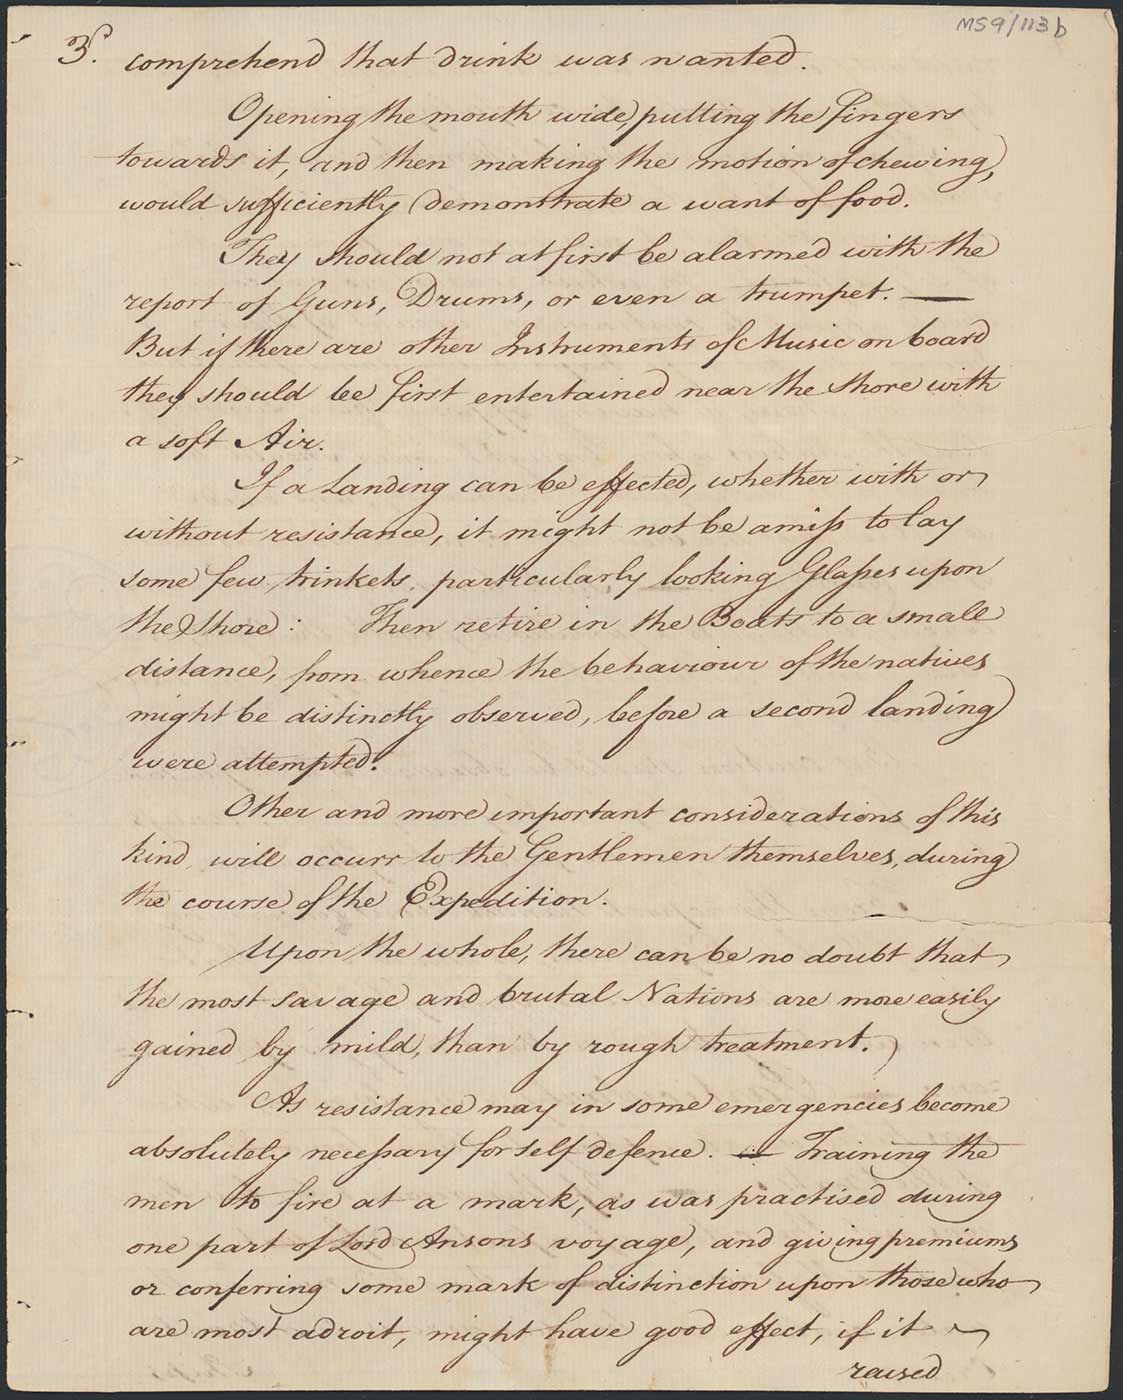 MS9/113b
3. comprehend that drink was wanted.
Opening the mouth wide, putting the fingers
towards it, and then making the motion of chewing,
would sufficiently demonstrate a want of food.
They should not at first be alarmed with the
report of Guns, Drums, or even a trumpet. —
But if there are other Instruments of Music on board
they should be first entertained near the Shore with
a soft Air.
If a Landing can be effected, whether with or
without resistance, it might not be amiss to lay
some few trinkets, particularly looking Glasses upon
the Shore: Then retire in the Boats to a small
distance, from whence the behaviour of the natives
might be distinctly observed, before a second landing
were attempted.
Other and more important considerations of this
kind will occurr to the Gentlemen themselves, during
the course of the Expedition.
Upon the whole, there can be no doubt that
the most savage and brutal Nations are more easily
gained by mild, than by rough treatment.
As resistance may in some emergencies become
absolutely necessary for self defence. — Training the
men to fire at a mark, as was practised during
one part of Lord Ansons voyage, and giving premiums
or conferring some mark of distinction upon those who
are most adroit, might have good effect, if it
raised